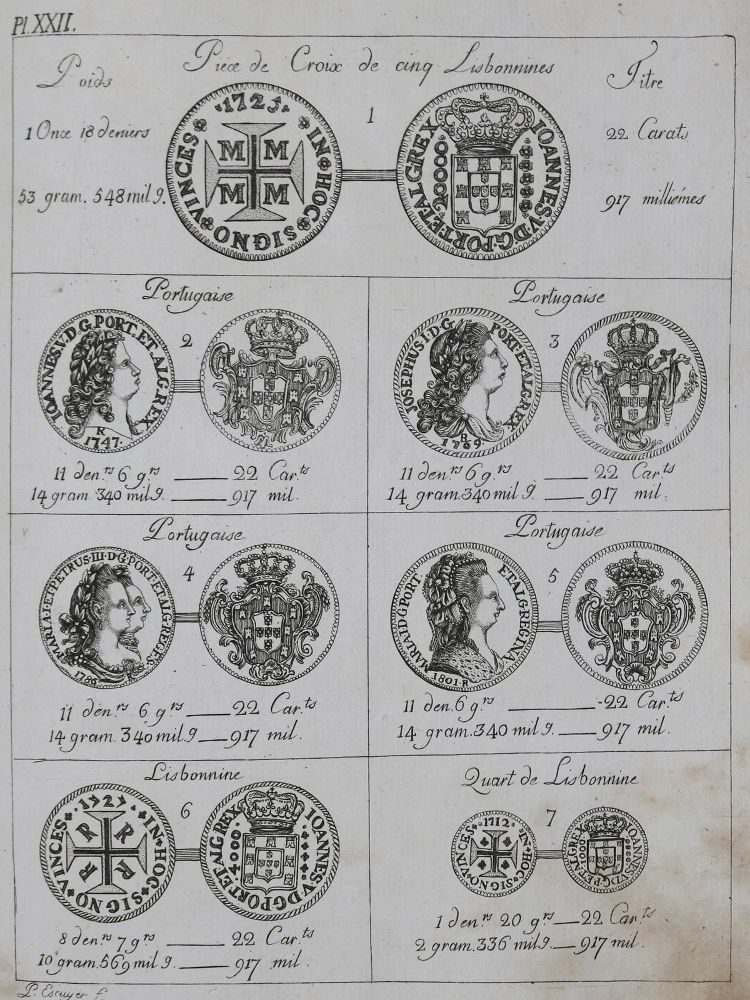 Pl. XXII.
Piece de Croix de cinq Lisbonnines
Poids
Titre
1
1 Once 18 deniers
22 Carats
53 gram. 548 mil g.
917 milliémes
·1725· IN HOC SIGNO VINCES
M M
M M
IOANNES.V.D.G.PORT.ET.ALG.REX
20000
Portugaise
2
IOANNES.V.D.G.PORT.ET.ALG.REX
R
1747.
11 den.rs 6 g.rs ___ 22 Car.ts
14 gram 340 mil g. ___ 917 mil.
Portugaise
3
JOSEPHUS.I.D.G. PORT.ET.ALG.REX
B
1769
11 den.rs 6 g.rs ___ 22 Car.ts
14 gram.340 mil g. ___ 917 mil.
Portugaise
4
MARIA.I.ET.PETRUS.III.D.G.PORT.ET.ALG.REGES
R
11 den.rs 6 g.rs ___ 22 Car.ts
14 gram.340 mil g. ___ 917 mil.
Portugaise
5
MARIA.I.D.G.PORT ET.ALG.REGINA
1801.R
11 den.6 g.rs ___ 22 Car.ts
14 gram.340 mil g. ___ 917 mil.
Lisbonnine
6
·1727· IN HOC SIGNO VINCES
R R
R R
IOANNES.V.D.G.PORT.ET.ALG.REX
4000
8 den.rs 7 g.rs ___ 22 Car.ts
10 gram.569 mil g. ___ 917 mil.
Quart de Lisbonnine
7
·1712· IN HOC SIGNO VINCES
IOANNES.V.D.G.P.ET.ALG.REX
1000
1 den.rs 20 g.rs ___ 22 Car.ts
2 gram.336 mil g. ___ 917 mil.
P. Escuyer f.